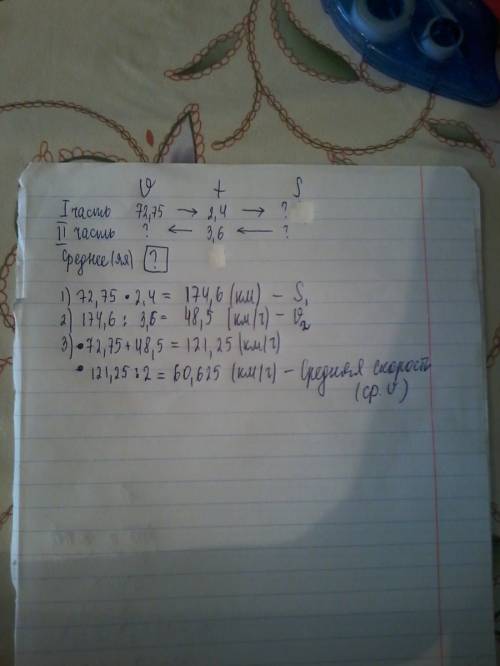 V t S
I часть 72,75 → 2,4 → ?
II часть ? ← 3,6 ← ?
Среднее(яя) ?
1) 72,75 · 2,4 = 174,6 (км) – S₁
2) 174,6 : 3,6 = 48,5 (км/ч) – V₂
3) • 72,75 + 48,5 = 121,25 (км/ч)
• 121,25 : 2 = 60,625 (км/ч) – Средняя скорость
(ср. V)